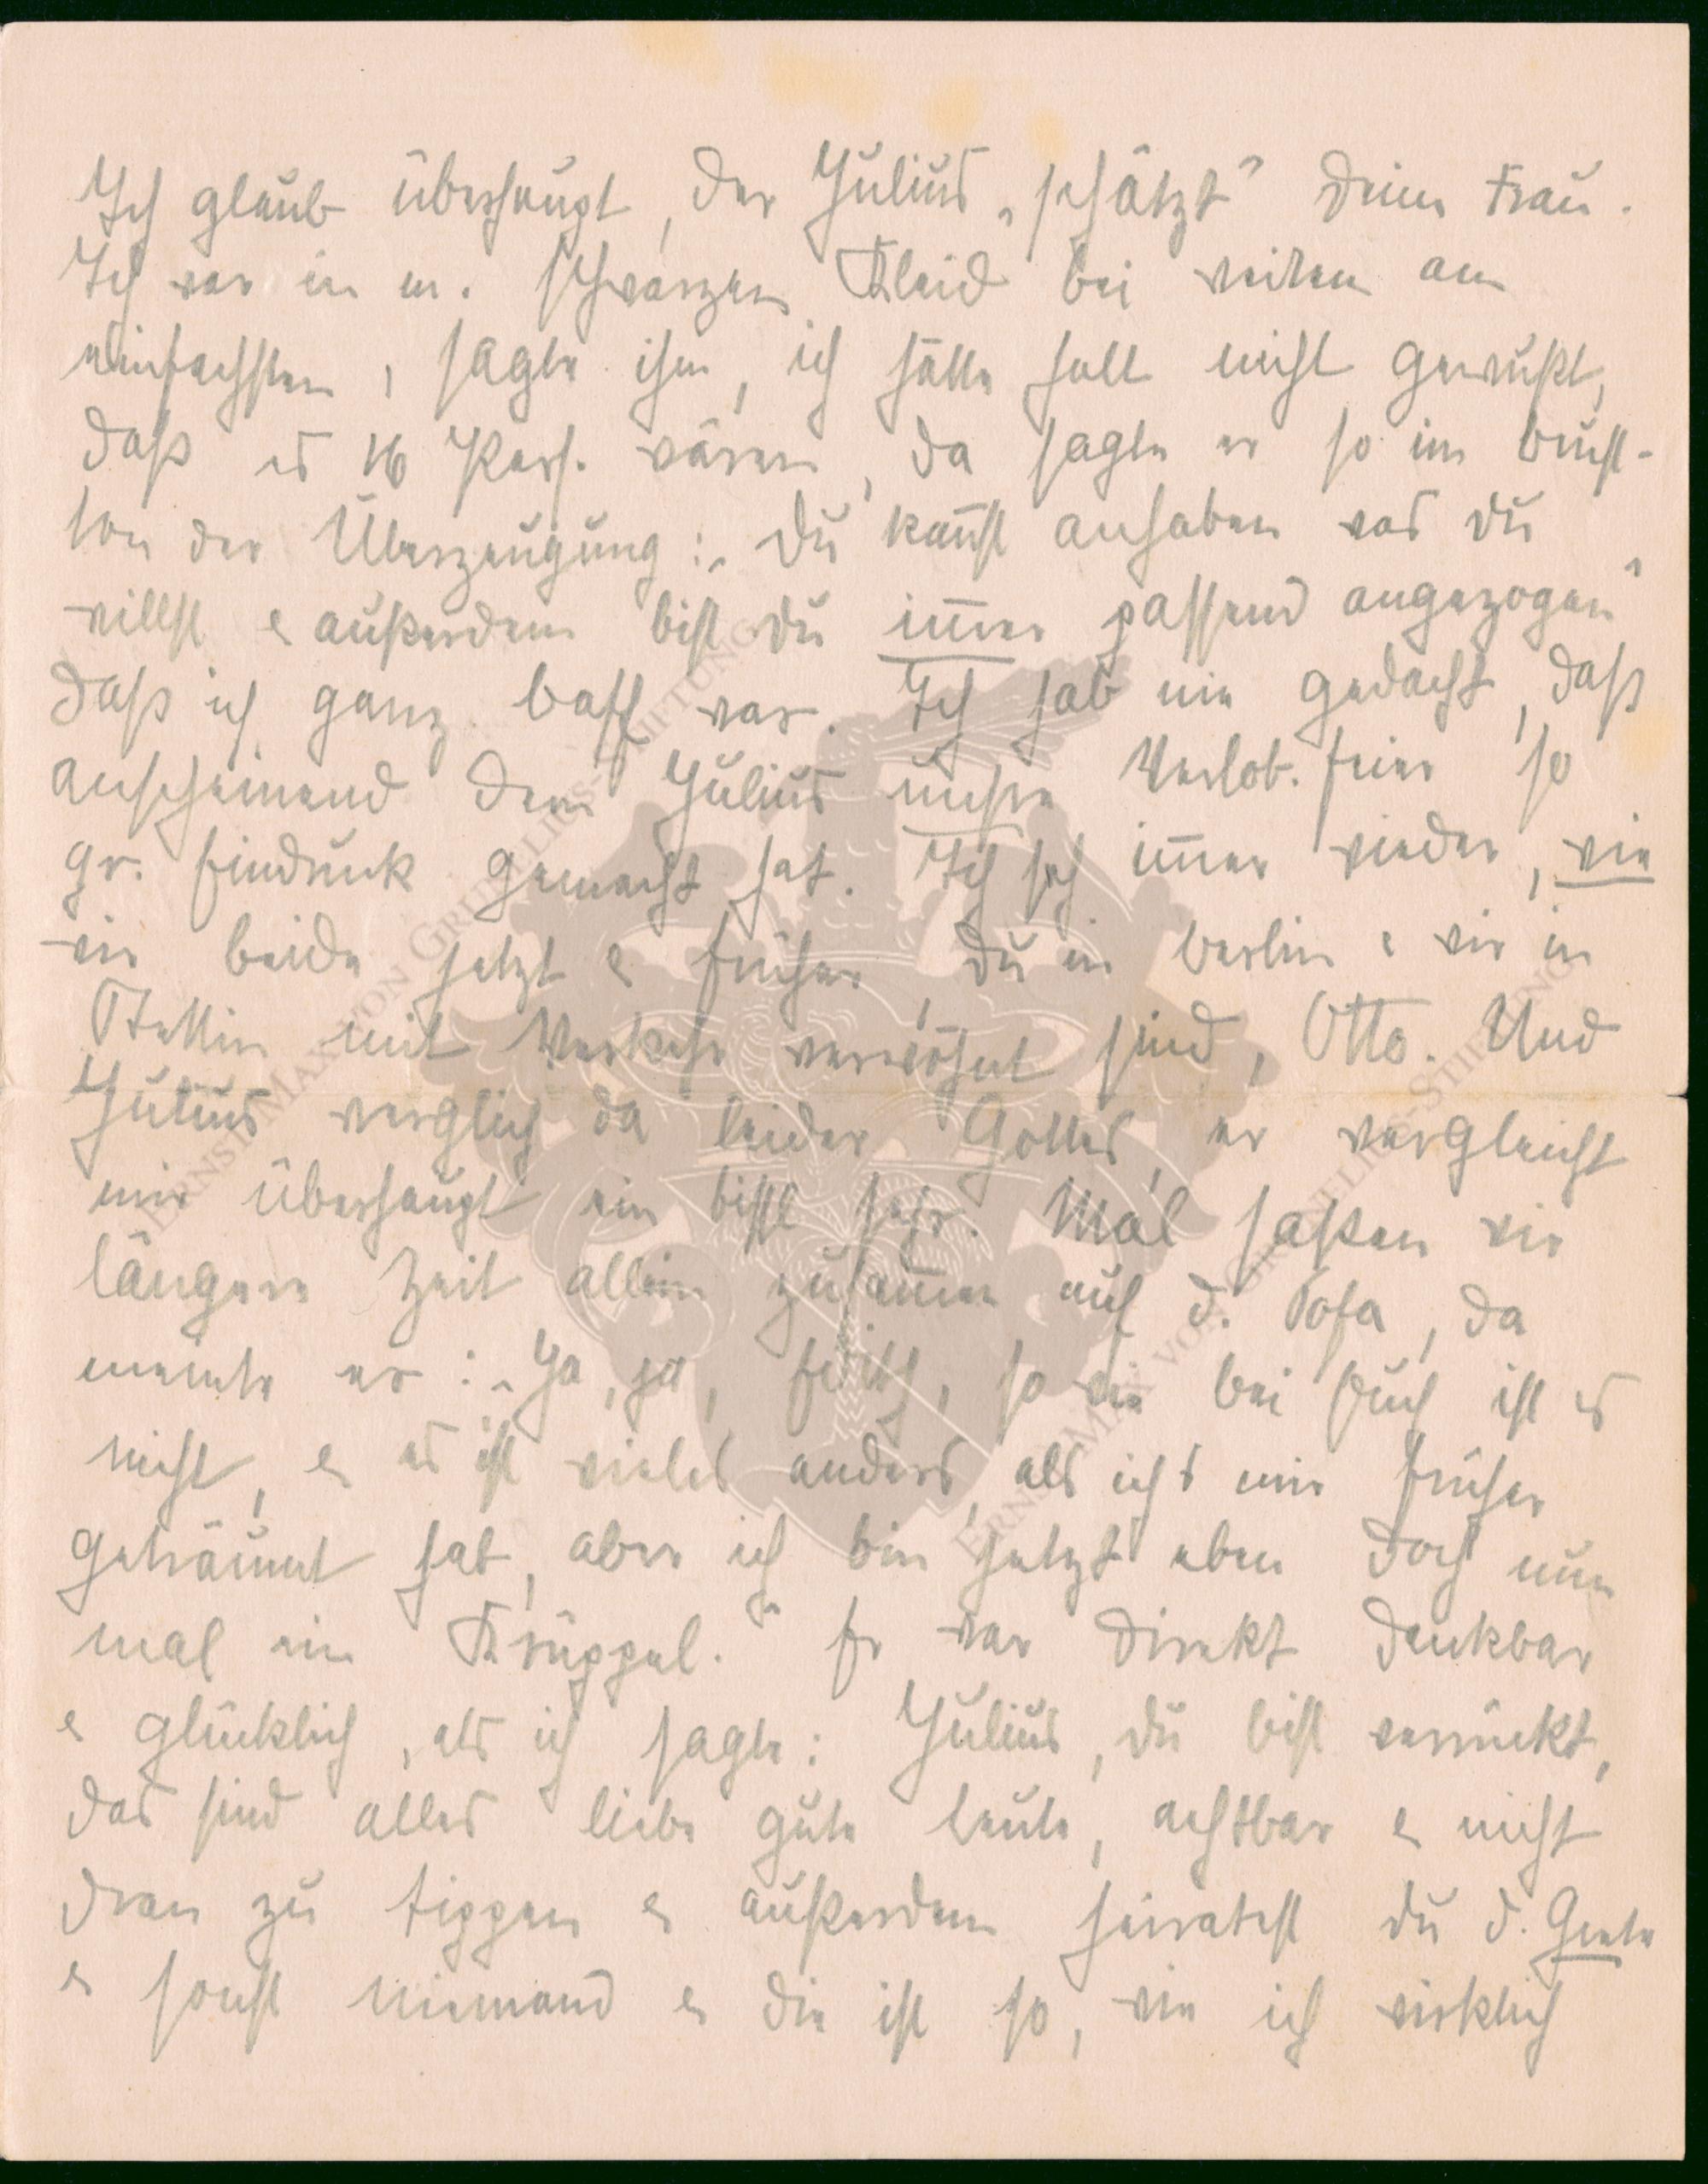 Ich glaub überhaupt, der Julius „schätzt" Deine Frau.
Ich war in m. schwarzen Kleid bei weitem am
einfachsten, sagte ihm, ich hätte halt nicht gewußt,
daß es 16 Pers. wären, da sagte er so im Brust-
ton der Überzeugung: „Du kannst anhaben was du
willst & außerdem bist du immer passend angezogen"
daß ich ganz baff war. Ich hab nie gedacht, daß
anscheinend dem Julius unsre Verlob. feier so
gr. Eindruck gemacht hat. Ich seh immer wieder, wie
wir beide jetzt & früher, Du in Berlin & wir in
Stettin mit Verkehr verwöhnt sind, Otto. Und
Julius verglich da leider Gottes, er vergleicht
mir überhaupt ein bissl sehr. Mal saßen wir
längere Zeit allein zusammen auf d. Sofa, da
meinte er: „Ja, ja, so wie bei Euch ist es
nicht, & es ist vieles anders, als ich's mir früher
geträumt hab, aber ich bin jetzt eben doch nun
mal ein Krüppel." Er war direkt dankbar
& glücklich, als ich sagte: Julius, du bist verrückt,
das sind alles liebe gute Leute, achtbar & nicht
dran zu tippen & außerdem heiratest du d. Grete
& sonst niemand & die ist so, wie ich wirklich
ERNST MAX VON GRUNELIUS-STIFTUNG
ERNST MAX VON GRUNELIUS-STIFTUNG